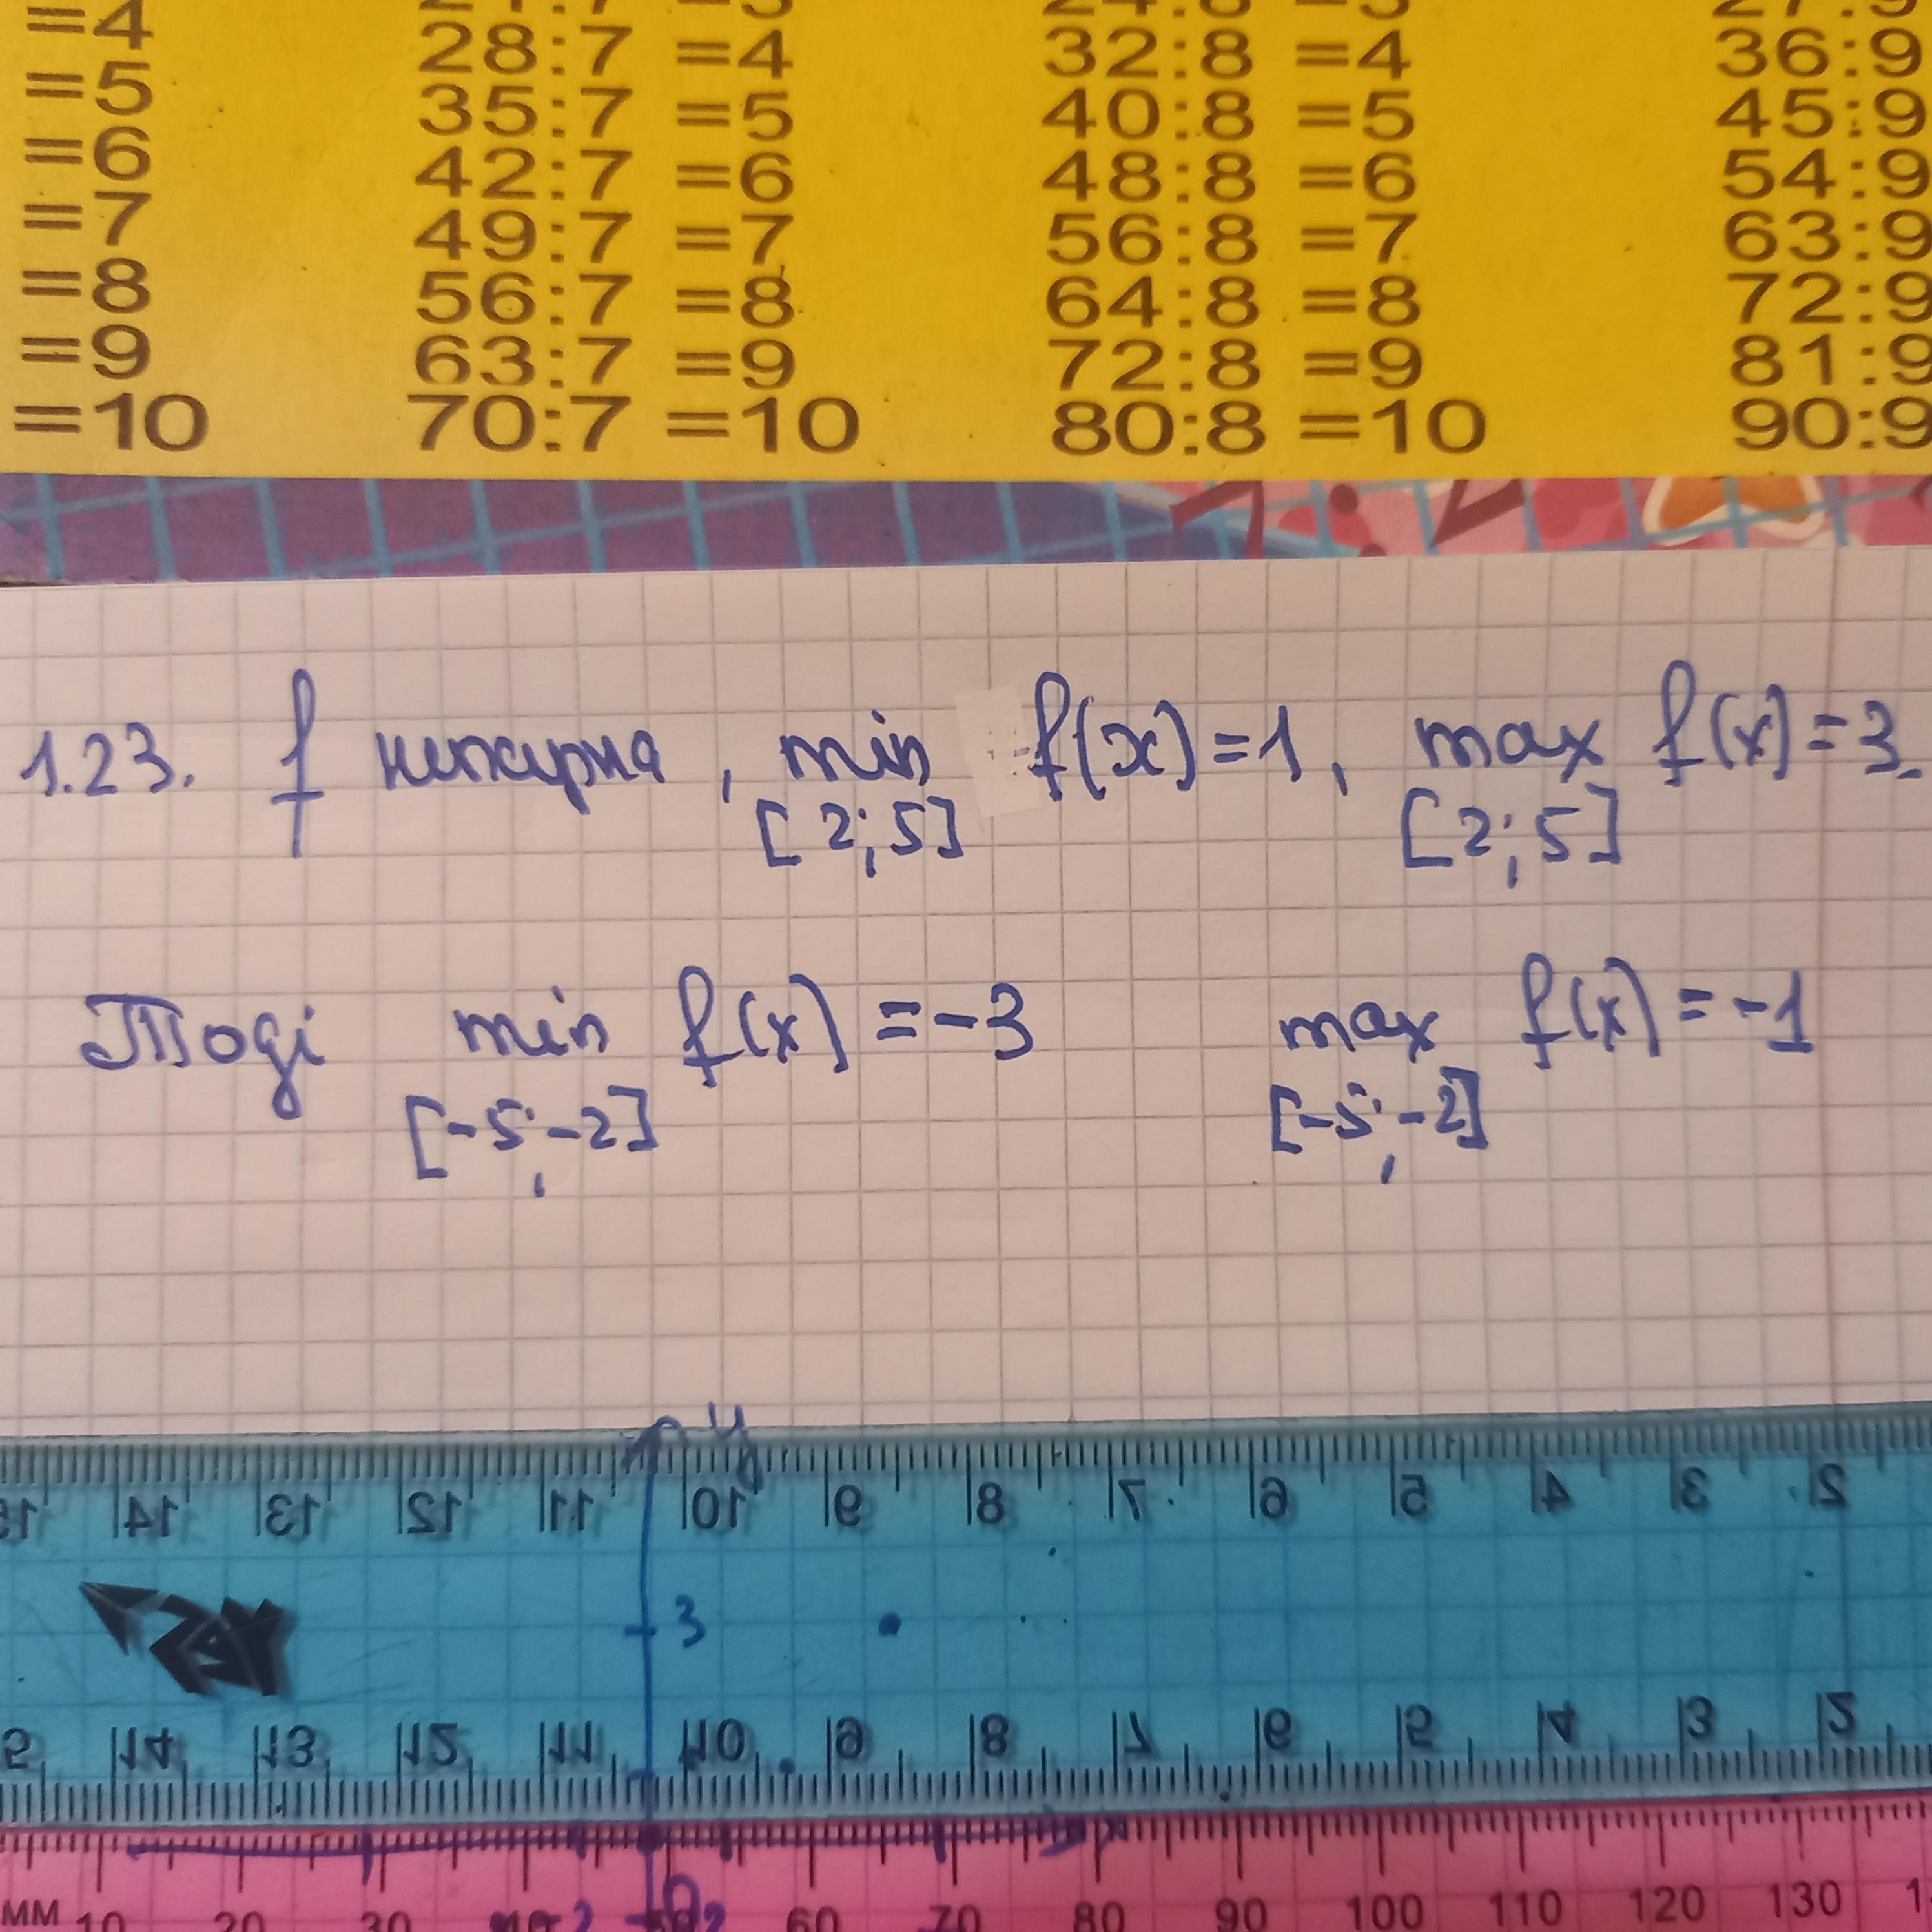 =4 28:7 =4 32:8 =4 36:9
=5 35:7 =5 40:8 =5 45:9
=6 42:7 =6 48:8 =6 54:9
=7 49:7 =7 56:8 =7 63:9
=8 56:7 =8 64:8 =8 72:9
=9 63:7 =9 72:8 =9 81:9
=10 70:7 =10 80:8 =10 90:9
1.23. f непарна, min f(x)=1, max f(x)=3.
[2;5] [2;5]
Тоді min f(x)=-3 max f(x)=-1
[-5;-2] [-5;-2]
y
14 13 12 11 10 9 8 7 6 5 4 3 2
3
14 13 12 11 10 9 8 7 6 5 4 3 2
MM 10 20 30 60 70 80 90 100 110 120 130